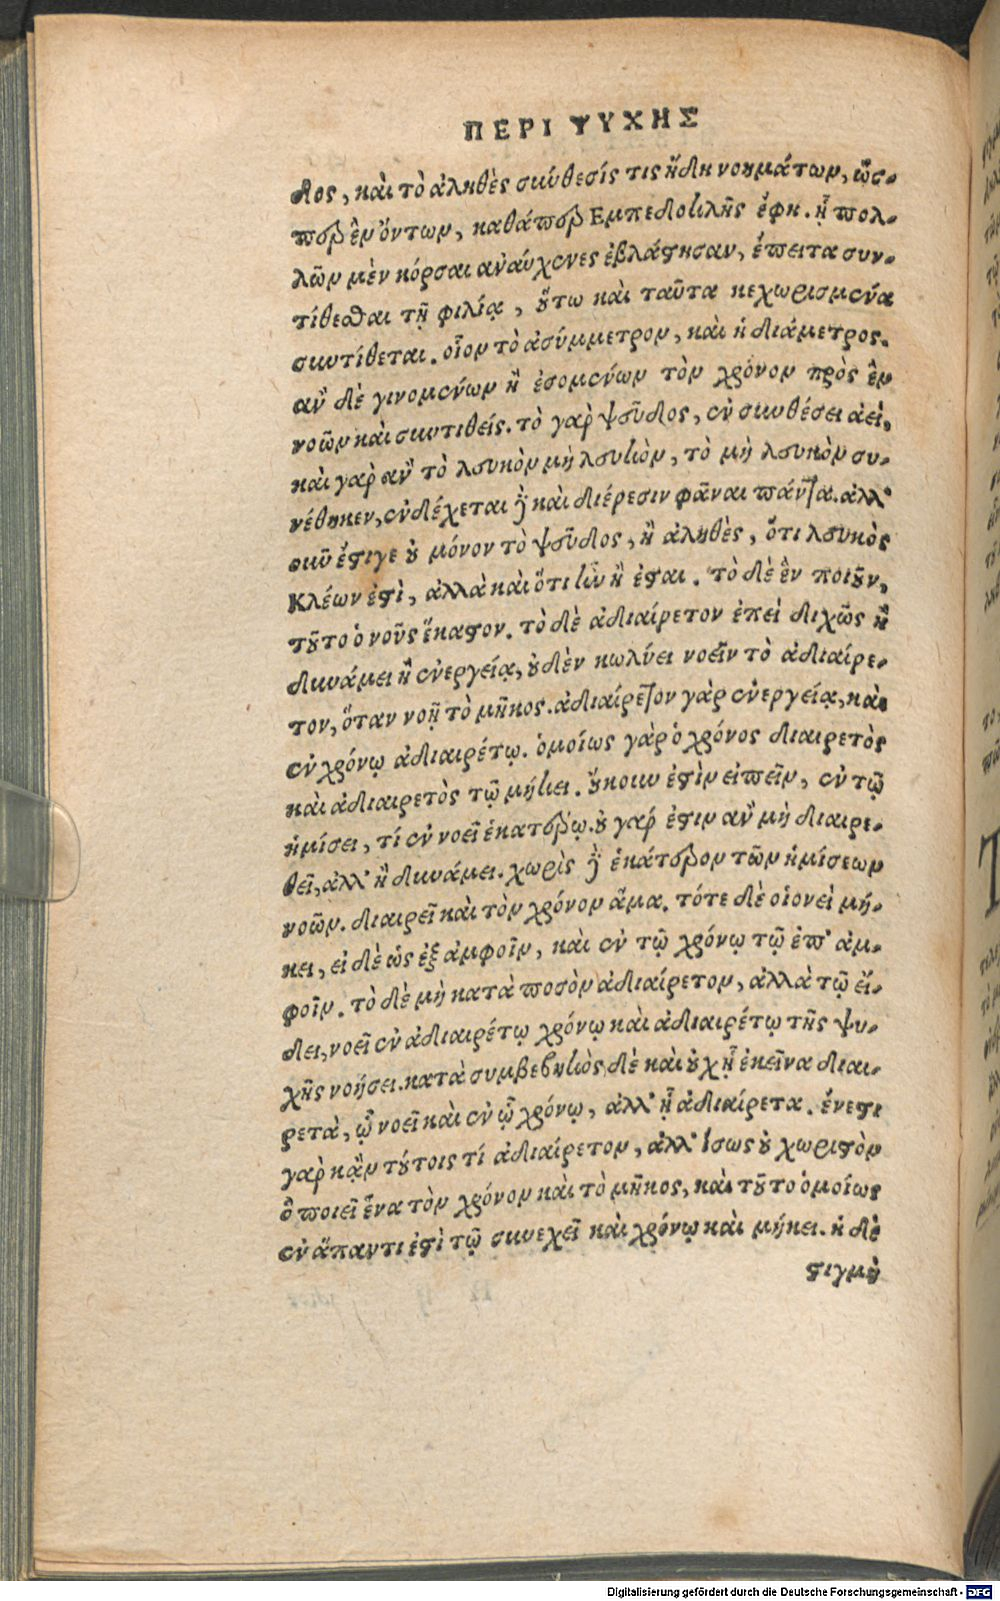 ΠΕΡΙ ΨΥΧΗΣ
δος, καὶ τὸ ἀληθὲς σύνθεσίς τις ἤδη νοημάτων, ὥσ-
περ ἓν ὄντων, καθάπερ Εμπεδοκλῆς ἔφη. ᾗ πολ-
λῶν μὲν κόρσαι ἀναύχενες ἐβλάστησαν, ἔπειτα συν-
τίθεσθαι τῇ φιλίᾳ, οὕτω καὶ ταῦτα κεχωρισμένα
συντίθεται. οἷον τὸ ἀσύμμετρον, καὶ ἡ διάμετρος.
ἂν δὲ γινομένων ἢ ἐσομένων τὸν χρόνον πρὸς ἓν
νοῶν καὶ συντιθείς. τὸ γὰρ ψεῦδος, ἐν συνθέσει ἀεί,
καὶ γὰρ ἂν τὸ λευκὸν μὴ λευκὸν, τὸ μὴ λευκὸν συ-
νέθηκεν, ἐνδέχεται δὲ καὶ διέρεσιν φᾶναι πάντα. ἀλλ'
οὖν ἔστιγε οὐ μόνον τὸ ψεῦδος, ἢ ἀληθὲς, ὅτι λευκὸς
Κλέων ἐστὶ, ἀλλὰ καὶ ὅτι ἦν ἢ ἔσται. τὸ δὲ ἓν ποιοῦν,
τοῦτο ὁ νοῦς ἕκαστον. τὸ δὲ ἀδιαίρετον ἐπεὶ διχῶς ἢ
δυνάμει ἢ ἐνεργείᾳ, οὐδὲν κωλύει νοεῖν τὸ ἀδιαίρε-
τον, ὅταν νοῇ τὸ μῆκος. ἀδιαίρετον γὰρ ἐνεργείᾳ, καὶ
ἐν χρόνῳ ἀδιαιρέτῳ. ὁμοίως γὰρ ὁ χρόνος διαιρετὸς
καὶ ἀδιαιρετὸς τῷ μήκει. οὔκουν ἐστὶν εἰπεῖν, ἐν τῷ
ἡμίσει, τί ἐν νοεῖ ἑκατέρῳ. οὐ γάρ ἐστιν ἂν μὴ διαιρε-
θεῖ, ἀλλ' ἢ δυνάμει. χωρὶς δὲ ἑκάτερον τῶν ἡμίσεων
νοῶν. διαιρεῖ καὶ τὸν χρόνον ἅμα. τότε δὲ οἱονεὶ μή-
κει, εἰ δὲ ὡς ἐξ ἀμφοῖν, καὶ ἐν τῷ χρόνῳ τῷ ἐπ' ἀμ-
φοῖν. τὸ δὲ μὴ κατὰ ποσὸν ἀδιαίρετον, ἀλλὰ τῷ εἴ-
δει, νοεῖ ἐν ἀδιαιρέτῳ χρόνῳ καὶ ἀδιαιρέτῳ τῆς ψυ-
χῆς νοήσει. κατὰ συμβεβηκὸς δὲ καὶ οὐχ ᾗ ἐκεῖνα διαι-
ρετὰ, ᾧ νοεῖ καὶ ἐν ᾧ χρόνῳ, ἀλλ' ᾗ ἀδιαίρετα. ἔνεστι
γὰρ κᾂν τούτοις τί ἀδιαίρετον, ἀλλ' ἴσως οὐ χωριστὸν
ὃ ποιεῖ ἕνα τὸν χρόνον καὶ τὸ μῆκος, καὶ τοῦτο ὁμοίως
ἐν ἅπαντι ἐστὶ τῷ συνεχεῖ καὶ χρόνῳ καὶ μήκει. ἡ δὲ
στιγμὴ
Digitalisierung gefördert durch die Deutsche Forschungsgemeinschaft - DFG